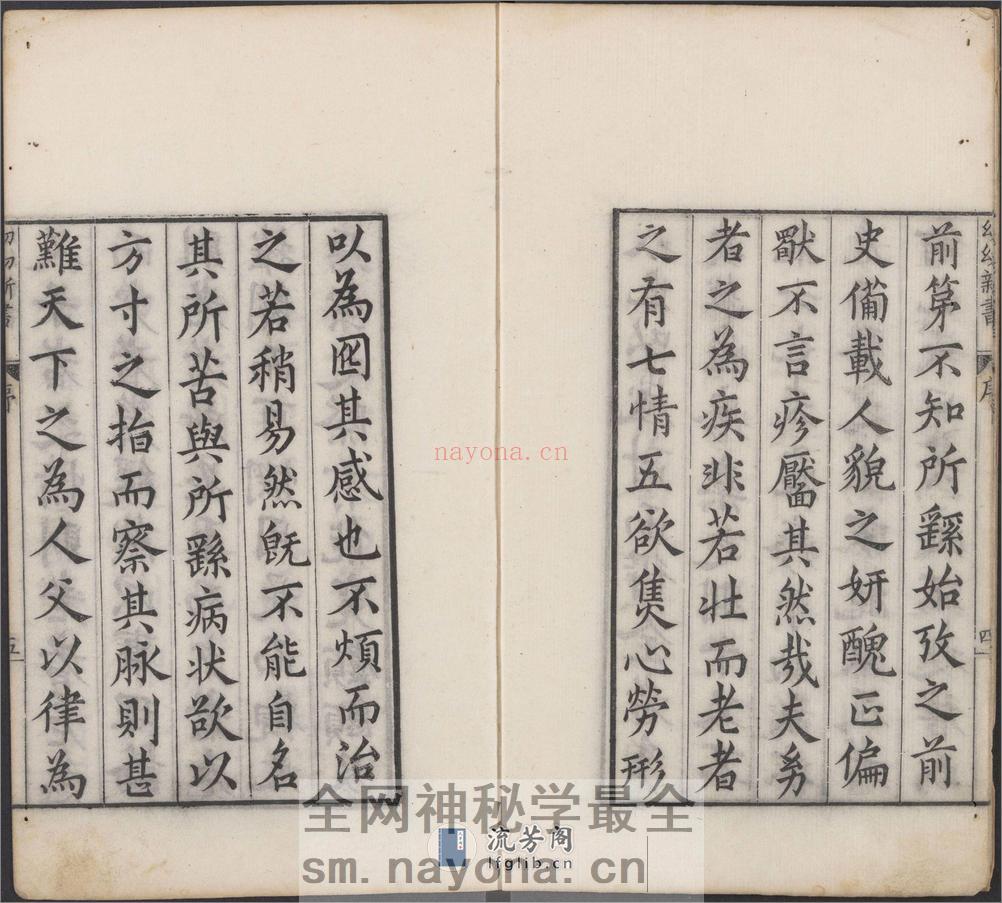 幼幼新書
序
四
前第不知所繇始攷之前
史備載人貌之妍醜正偏
獸不言疹靨其然哉夫幼
者之為疾非若壯而老者
之有七情五欲雋心勞形
以為困其感也不煩而治
之若稍易然旣不能自名
其所苦與所繇病狀欲以
方寸之指而察其脉則甚
難天下之為人父以律為
幼幼新書
序
五
nayona.cn
全网神秘学最全
流芳阁
lfglib.cn
sm.nayona.cn